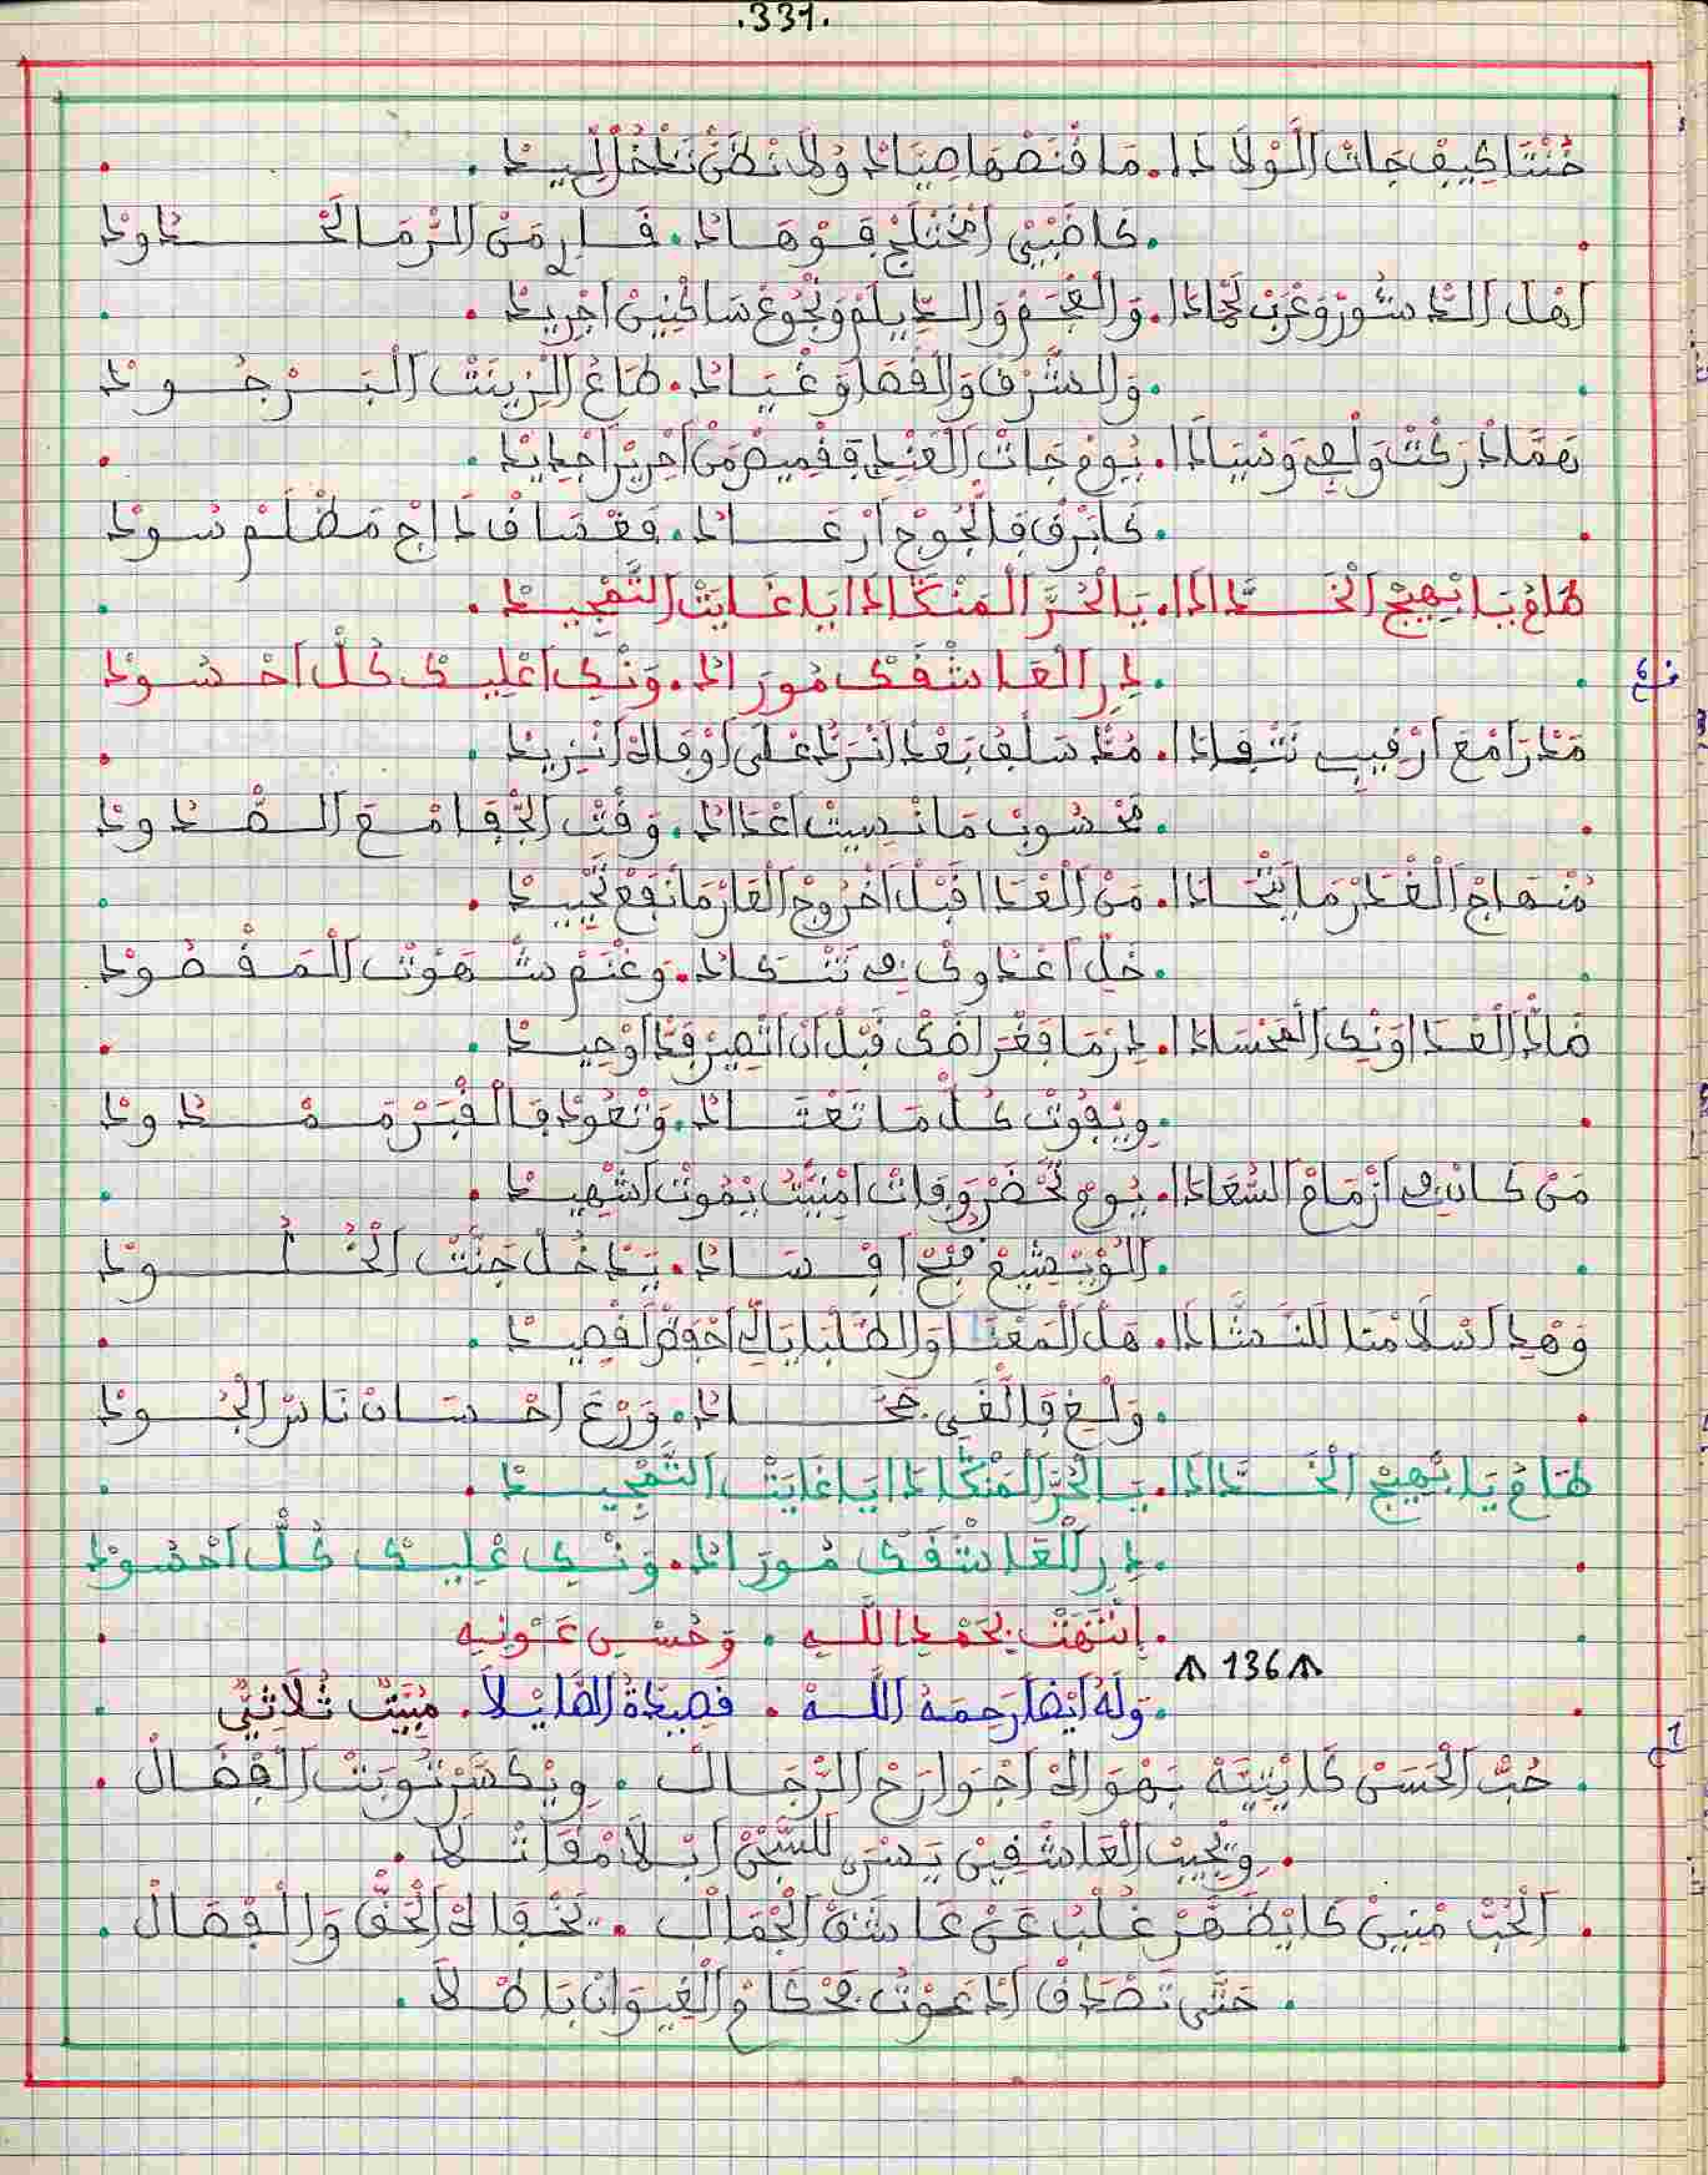 .331.
خُنْتَا كِيفْ جَاتْ الْوْلَادَا. مَا قْنَصْهَا صِيَادْ وُلَا نْظَنْ تَدْخُلْ لْلِيدْ.
.كَاضَبْيْ امْخَنْتَلْ فَوْهَادْ. فَارِ مَنْ الرّْمَا لَخْدَاوَدْ
اهْلْ الدَّشُورْ وَعْرَبْ نَجَادَا. وَالْعْجَمْ وَالدِّيلَمْ وَنْجُوعْ سَاكْنِينْ اجْرِيدْ.
.وَالشَّرْقْ وَالْقْهَا وَعْبَادْ. طَاعُ الْزِينَتْ الْبَرْجُودْ
هَمَّادْ رَكْتْ وَلْهِي وَسْيَادَا. يُومْ جَاتْ الْغَيْدْ فِقْمِيصْ مَنْ احْرِيرْ اجْدِيدْ.
.كَابَرْقْ فِالْجُوجْ ارْعَادْ. فَغْسَاقْ دَاجْ مَظْلَمْ سُودْ
هَامْ يَا بْهِيجْ الْخَدَّادَا. يَا لْحُرَّ الْمَنْكَادَا يَا غَايَتْ التَّمْجِيدْ.
.دِرِ الْعَاشْقَكْ مُورَادْ. وَنْكِ اعْلِيكْ كُلّْ احْسُودْ
مَدْرَا مْعَ ارْقِيبِ نَتْفَادَا. مُدَّ سَلْفُ بَعْدْ انْرَدْ عْلَى اوْفَاكْ انْزِيدْ.
.مَحْسُوبْ مَا نْسِيتْ اعْدَادْ. وَقْتْ الْجْفَا مْعَ الصُّدُودْ
مُنْهَاجْ الْغْدَرْ مَا يَنْحَادَا. مَنْ الْعْدَا قَبْلْ اخْرُوجْ الْعَارْ مَا نَفْعْ تَحْيِيدْ.
.خَلِّ اعْدُوكْ فِي تَنْكَادْ. وَغْنَمْ شَهْوَتْ الْمَقْصُودْ
ضَادّْ الْعْدَا وَنْكِ الْحَسَادَا. دِرْ مَا فَغْرَاضَكْ قَبْلْ انْ اتْصِيرْ فَدَّا وْحِيدْ.
.وِيْفُوتْ كُلّْ مَا تَعْتَادْ. وَتْعُودْ فَالْقْبَرْ مَمْدُودْ
مَنْ كَانْ فِي ارْمَامْ السّْعَادَا. يُومْ تَحْضَرْ وَفَاتْ امْنِيتُ يْمُوتْ اشْهِيدْ.
.الْوْيِشِيعْ فِيحْ افْسَادْ. يَدْخُلْ جَنَّتْ الْخُلُودْ
وَهْدِ اسْلَامْنَا لَلنَّشَّادَا. هَلْ الْمَعْنَا وَالطَّلْبَا يَا لِّ احْفَضْ لَقْصِيدْ.
.وَلْغِ فَالَّغَى جَحَّادْ. وَرْعَ احْسَانْ نَاسْ الْجُودْ
هَامْ يَا بْهِيجْ الْخَدَّادَا. يَا لْحُرَّ الْمَنْكَادَا يَا غَايَتْ التَّمْجِيدْ.
.دِرِ الْعَاشْقَكْ مُورَادْ. وَنْكِ عْلِيكْ كُلّْ احْسُودْ
.اِنْتَهَتْ بِحَمْدِ اللَّهِ. وَحُسْنِ عَوْنِهِ
136
.وَلَهُ أَيْضًا رَحِمَهُ اللَّهْ. قَصِيدَةُ الضَّايْلَا. مُبَيَّتْ ثُلَاثِيّْ
1
.حُبّْ الْحَسَنْ كَايْتِيَّهْ بَهْوَاكْ اجْوَارَحْ الرّْجَالْ. وِيْكَسَّرْ تُوبَتْ الْفْضَالْ.
.وِيْجِيبْ الْعَاشْقِينْ يَسْرَ لَلسّْجَنْ ابْلَا مْقَاتْلَا.
.الْحُبّْ مْنِينْ كَايْظَهَّرْ غُلْبُ عَنْ عَاشَقْ الْجْمَالْ. يَخْفَاكْ الْحَقّْ وَالْفْصَالْ.
.حَتَّى تَصْدَاقْ الدَّعْوَتْ بَحْكَامْ الْغِيوَانْ بَاطْلَا.